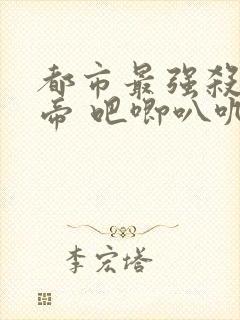 都市最强殺
帝 吧唧叭叽
李宏塔